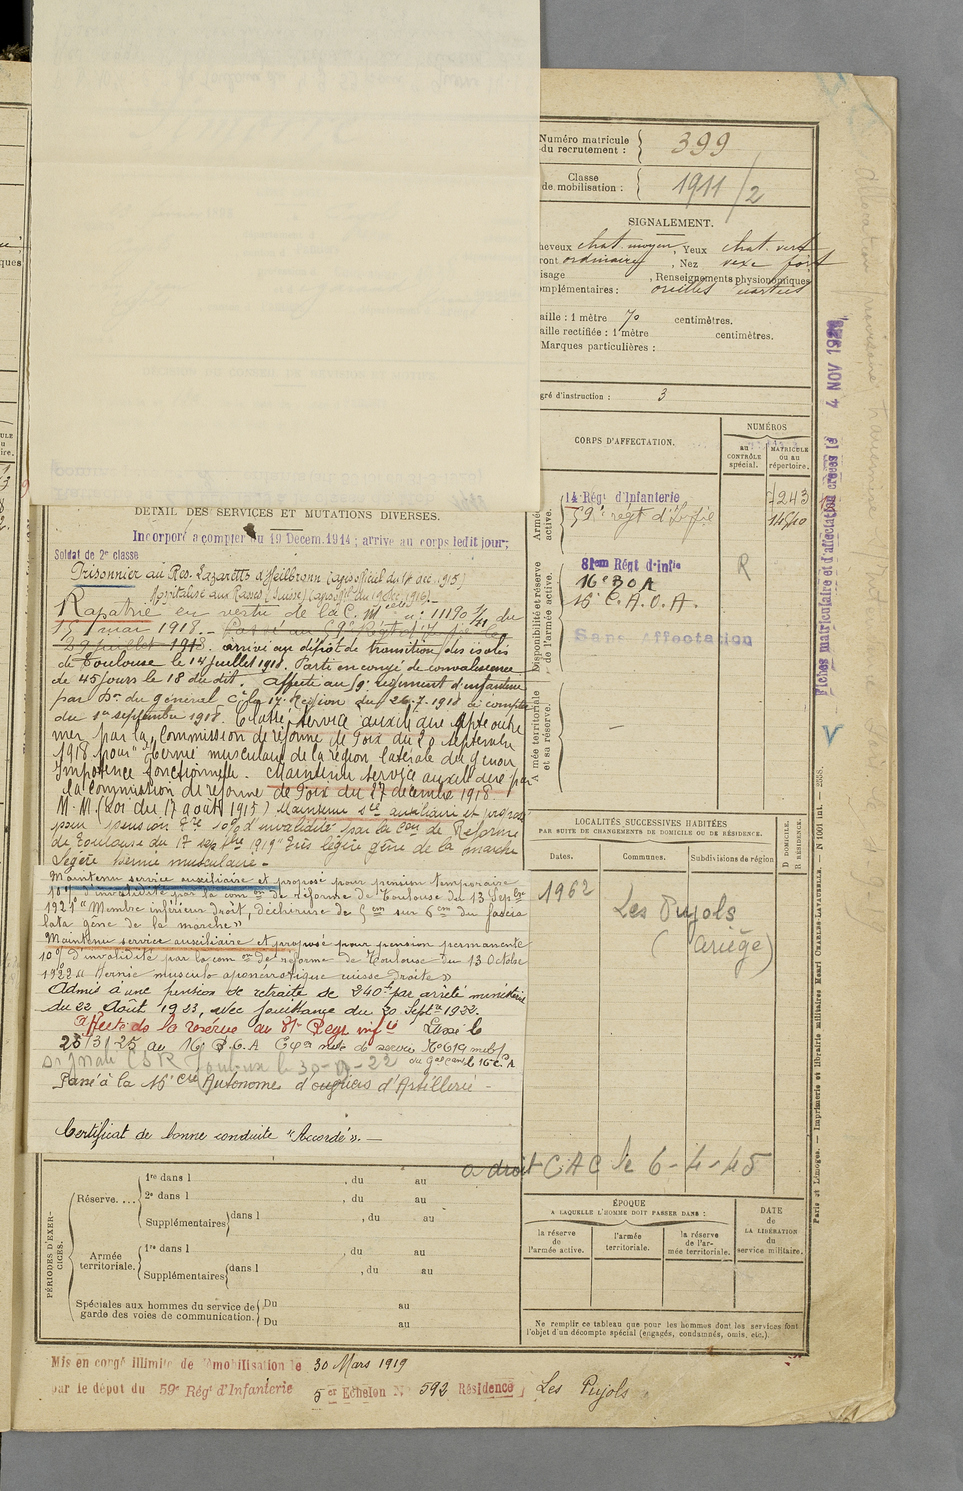 Numéro matricule
du recrutement : 399
Classe
de mobilisation : 1911/2
SIGNALEMENT.
heveux chat. moyen, Yeux chat. vert
ront ordinaire, Nez vexe fort
isage , Renseignements physionomiques
omplémentaires : oreilles écartées
aille : 1 mètre 70 centimètres.
aille rectifiée : 1 mètre centimètres.
Marques particulières :
gré d'instruction : 3
CORPS D'AFFECTATION.
NUMÉROS
au
CONTRÔLE
spécial.
MATRICULE
ou au
répertoire.
Armée
active.
14e Régt d'Infanterie 7243
59e regt d'Infie
Disponibilité et réserve
de l'armée active.
81em Régt d'infie R
16e B O A
15e C. A. O. A.
Sans Affectation
Armée territoriale
et sa réserve.
DÉTAIL DES SERVICES ET MUTATIONS DIVERSES.
Incorporé a compter du 19 Décem. 1914 ; arrive au corps ledit jour;
Soldat de 2e classe
Prisonnier au Res. Lazarett d'Heilbronn (avis officiel du 17 déc. 1915)
Rapatrié en vertu de la C. Mlle n° 11190 4/11 du
15 mai 1918. Passé au 59e Régt d'If le
29 juillet 1918. arrivé au dépôt de transition des isolés
de Toulouse le 14 juillet 1918. Parti en congé de convalescence
de 45 jours le 18 du dit. Affecté au 59e Régiment d'infanterie
par Don du général Ct la 17e Région du 26-7-1918 à compter
du 1er septembre 1918. Classé service auxiliaire apte outre
mer par la Commission de réforme de Foix du 20 septembre
1918 pour "hernie musculaire de la région latérale du genou
impotence fonctionnelle. Maintenu service auxiliaire par
la commission de réforme de Foix du 27 décembre 1918.
M. M. (Loi du 17 août 1915) Maintenu sce auxiliaire et proposé
pour pension tre 10% d'invalidité par la Con de Réforme
de Toulouse du 17 septbre 1919 "Très légère gêne de la marche
Légère hernie musculaire -
Maintenu service auxiliaire et proposé pour pension temporaire
10% d'invalidité par la comon de réforme de Toulouse du 13 Sepbre
1921 "Membre inférieur droit, déchirure de 5 cm sur 6 cm du fascia
lata gêne de la marche"
Maintenu service auxiliaire et proposé pour pension permanente
10% d'invalidité par la comon de réforme de Toulouse du 13 Octobre
1922 "Hernie musculo aponévrotique cuisse Droite"
Admis à une pension de retraite de 240f par arrêté ministériel
du 22 Août 1923, avec jouissance du 20 Septre 1922.
Affecté ds la réserve au 81e Regt infie Passé le
25/3/25 au 16e B.O.A
Passé à la 15e Cie Autonome d'ouvriers d'Artillerie -
Certificat de bonne conduite "Accordé". -
LOCALITÉS SUCCESSIVES HABITÉES
PAR SUITE DE CHANGEMENTS DE DOMICILE OU DE RÉSIDENCE.
Dates. Communes. Subdivisions de région
D DOMICILE.
R RÉSIDENCE.
1962 Les Pujols
(Ariège)
a droit CAC le 6-4-45
PÉRIODES D'EXER-
CICES.
Réserve....
1re dans l , du au
2e dans l , du au
Supplémentaires dans l , du au
Armée
territoriale.
1re dans l , du au
Supplémentaires dans l , du au
Spéciales aux hommes du service de
garde des voies de communication.
Du au
Du au
ÉPOQUE
A LAQUELLE L'HOMME DOIT PASSER DANS :
la réserve
de
l'armée active.
l'armée
territoriale.
la réserve
de l'ar-
mée territoriale.
DATE
de
LA LIBÉRATION
du
service militaire.
Ne remplir ce tableau que pour les hommes dont les services font
l'objet d'un décompte spécial (engagés, condamnés, omis, etc.).
Mis en congé illimité de démobilisation le 30 Mars 1919
par le dépôt du 59e Régt d'Infanterie 5er Echelon N° 592 Résidence Les Pujols
Fiches matriculaire et d'affectation créées le 4 NOV
Paris et Limoges. — Imprimerie et librairie militaires Henri CHARLES-LAVAUZELLE. — N° 1001 int. — 2558.